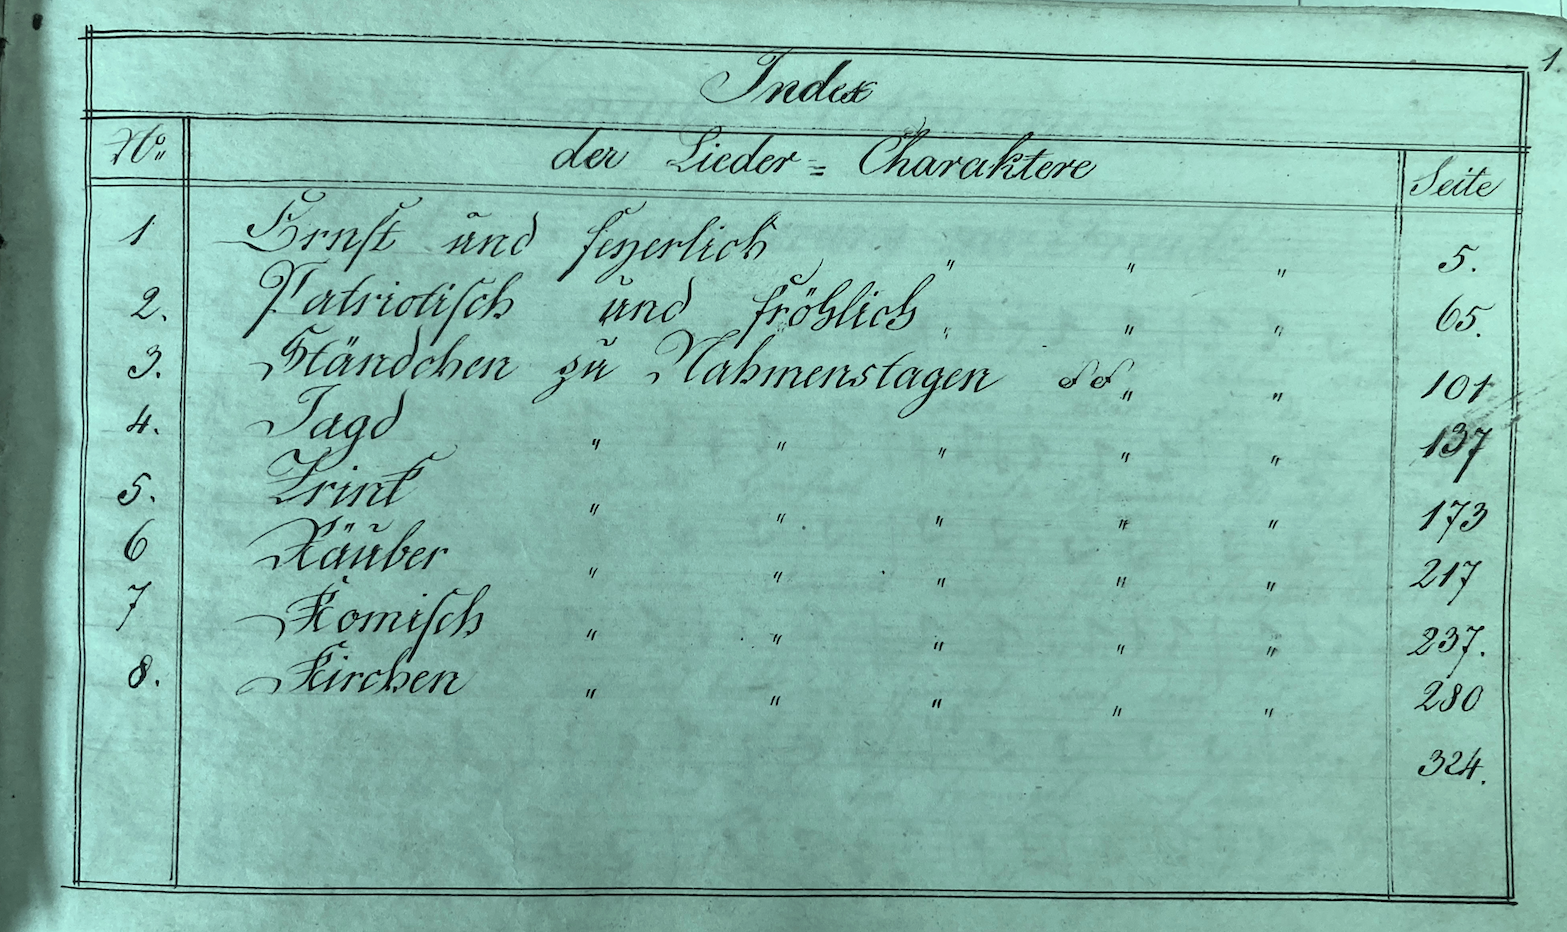 1.
Index
No. der Lieder = Charaktere Seite
1 Ernst und feyerlich " " " 5.
2. Patriotisch und fröhlich " " " 65.
3. Ständchen zu Nahmenstagen " " 101
4. Jagd " " " " " 137
5. Trink " " " " " 173
6 Räuber " " " " " 217
7 Komisch " " " " " 237.
8. Kirchen " " " " " 280
324.